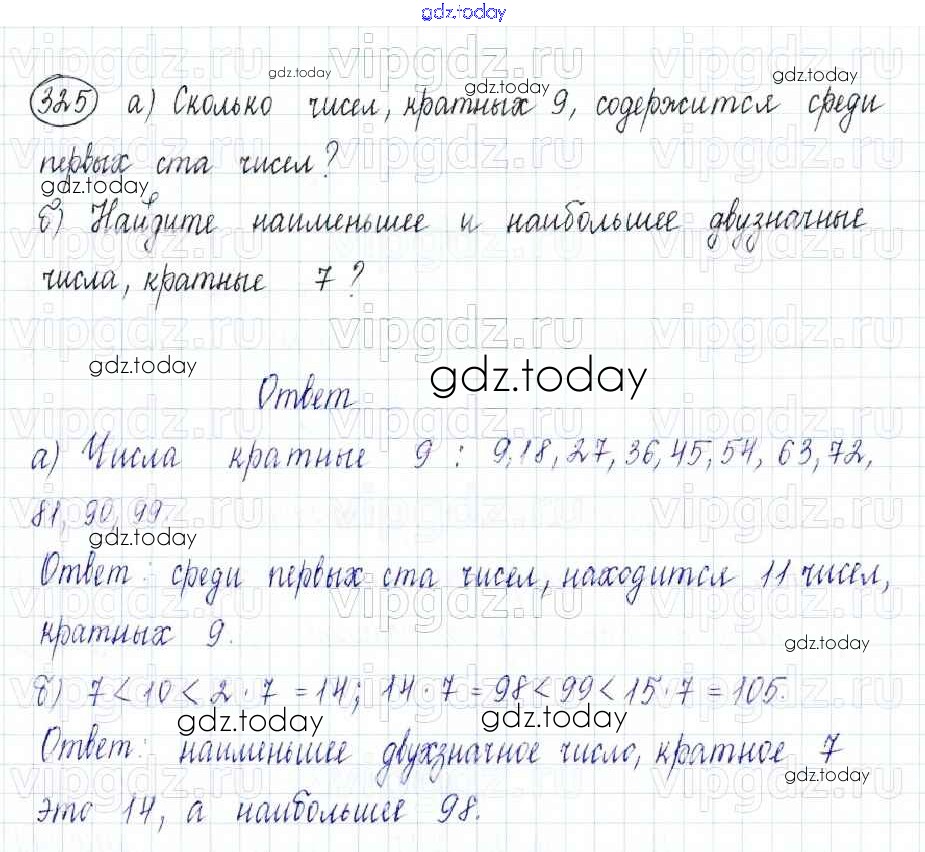 gdz.today
325 а) Сколько чисел, кратных 9, содержится среди
первых ста чисел?
б) Найдите наименьшее и наибольшее двузначные
числа, кратные 7?
Ответ
а) Числа кратные 9 : 9,18, 27, 36, 45, 54, 63, 72,
81, 90, 99.
Ответ: среди первых ста чисел, находится 11 чисел,
кратных 9.
б) 7 < 10 < 2 · 7 = 14; 14 · 7 = 98 < 99 < 15 · 7 = 105.
Ответ: наименьшее двухзначное число, кратное 7
это 14, а наибольшее 98.